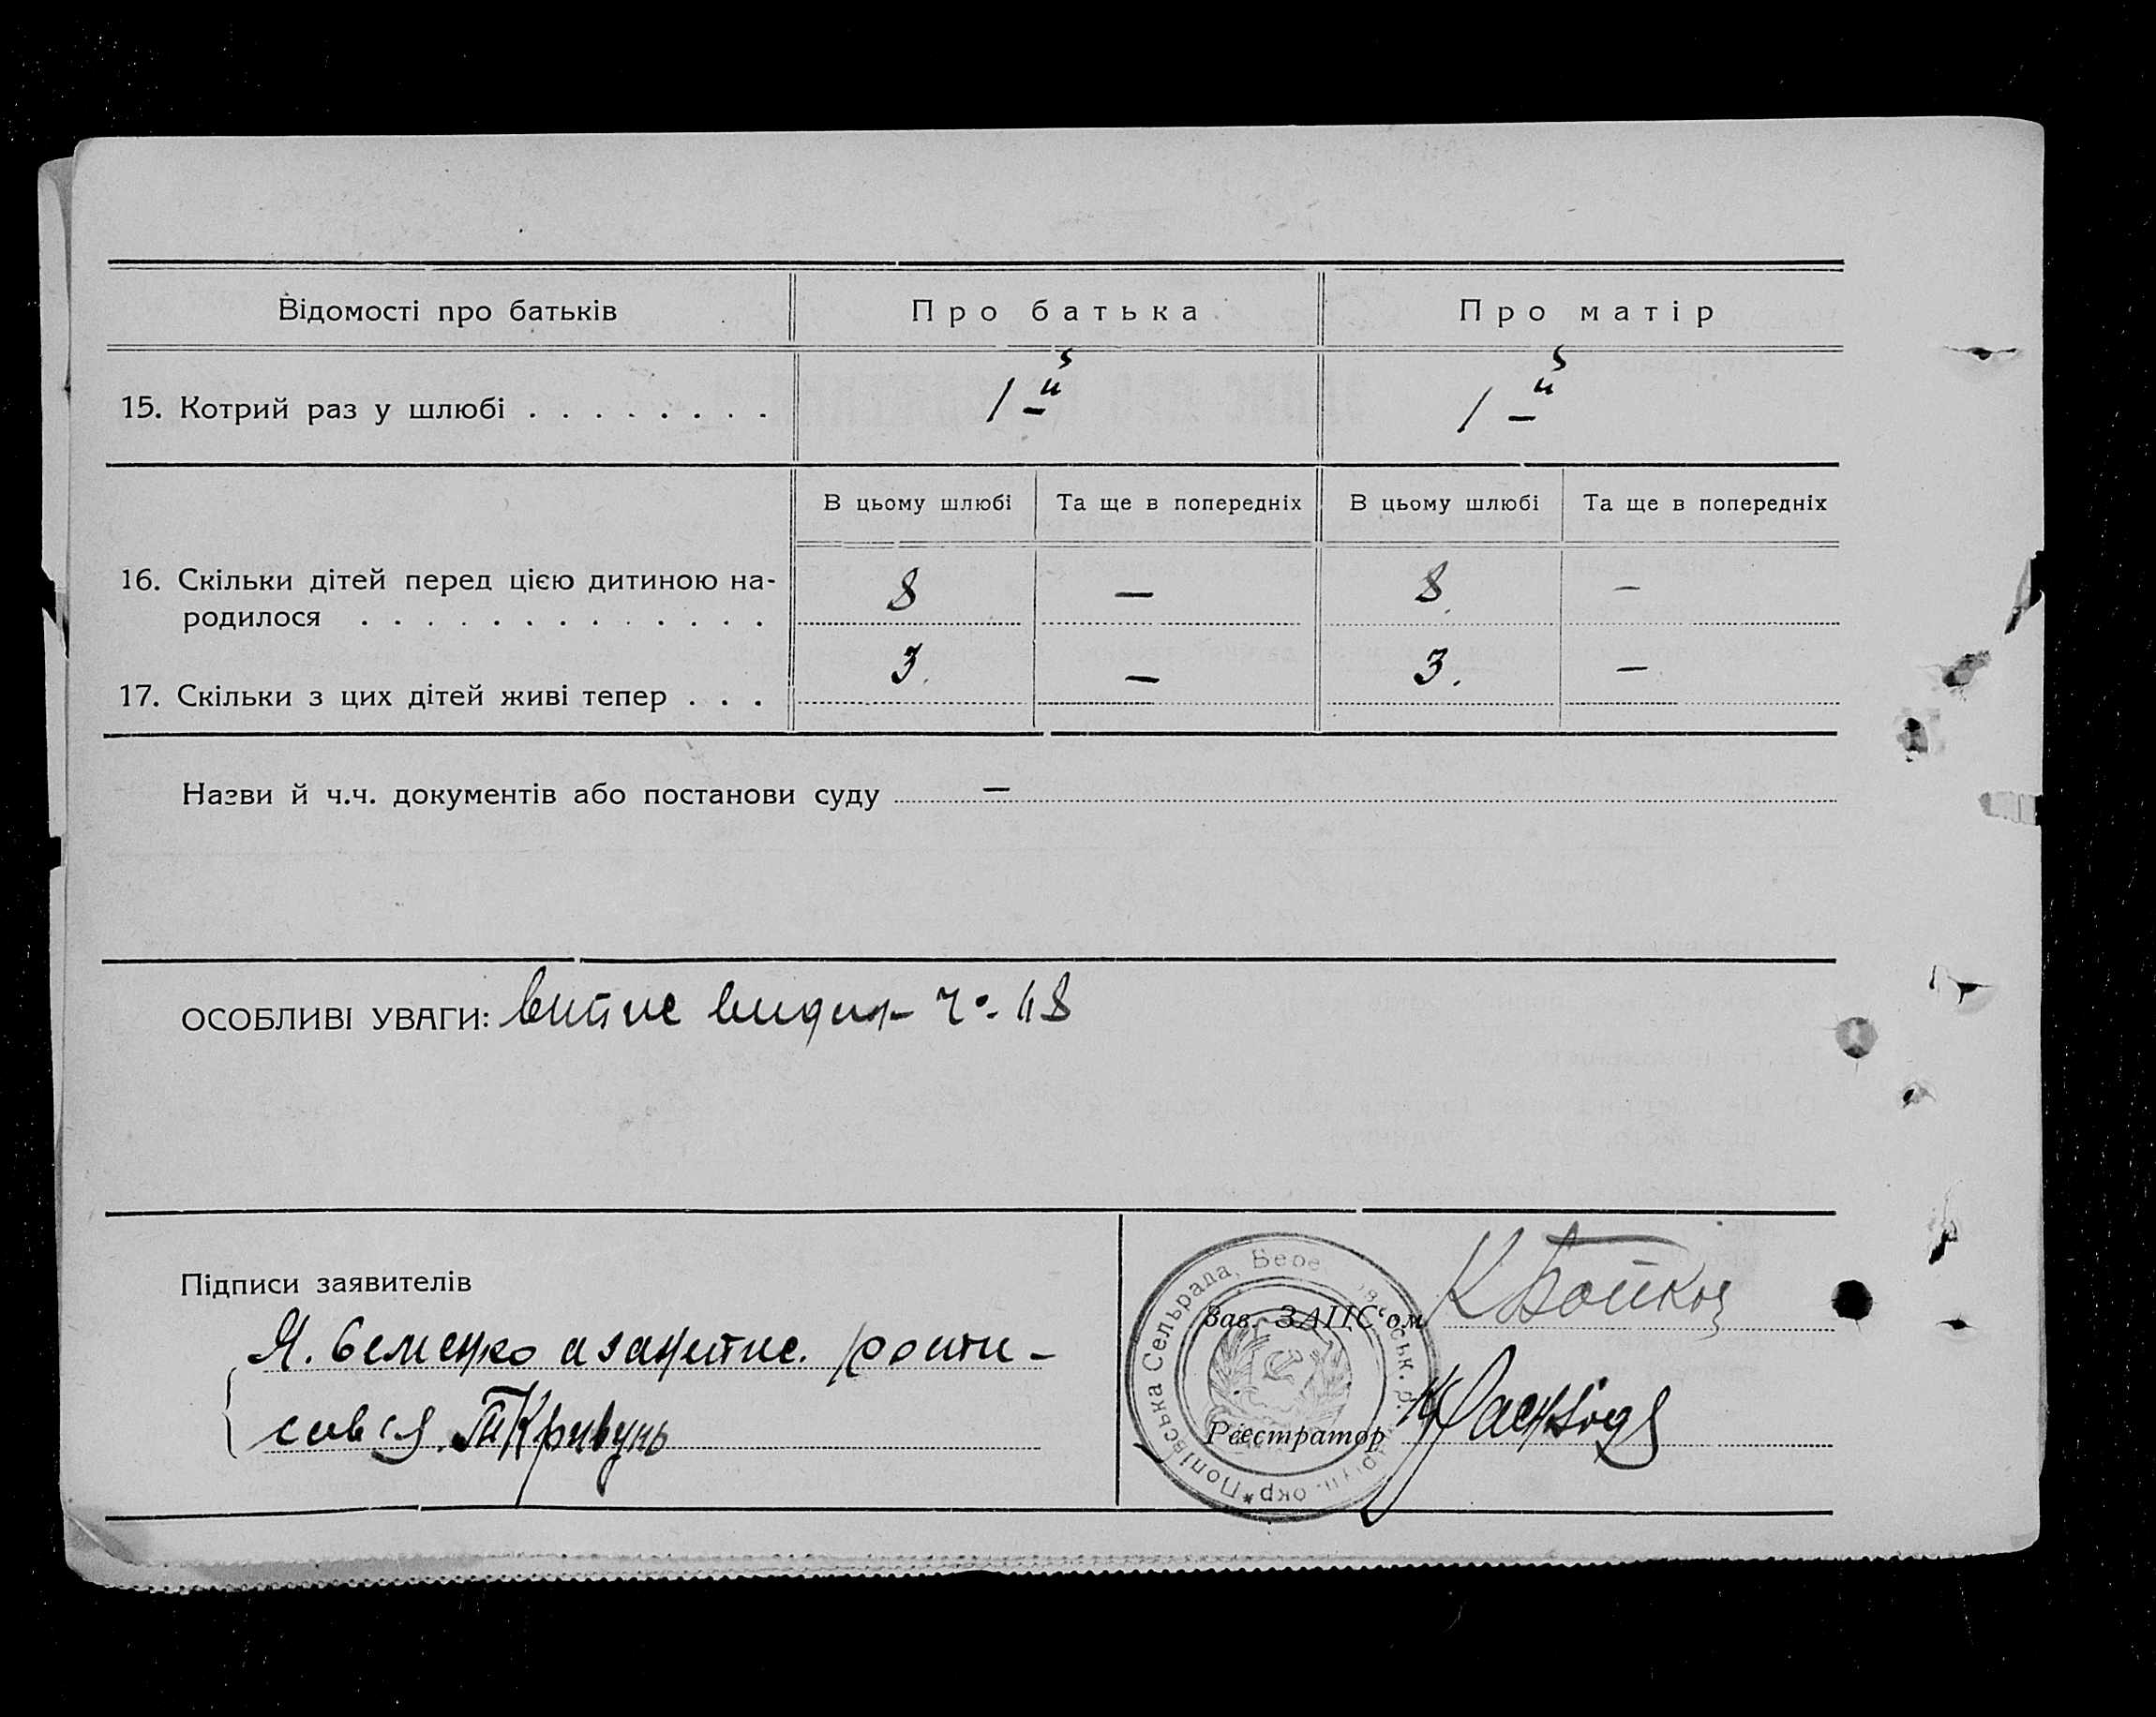 Відомості про батьків
Про батька
Про матір
15. Котрий раз у шлюбі . . . . . . . .
1-й
1-й
В цьому шлюбі
Та ще в попередніх
В цьому шлюбі
Та ще в попередніх
16. Скільки дітей перед цією дитиною на-
родилося . . . . . . . . . . . . .
8
—
8.
—
17. Скільки з цих дітей живі тепер . . .
3.
—
3.
—
Назви й ч.ч. документів або постанови суду —
ОСОБЛИВІ УВАГИ: витис видан
Підписи заявителів
Я. Семенко а за
сався. Кривунь
Зав. ЗАЦС'ом К Бойко
Реєстратор
Попівська Сельрада, Бере ськ. р. окр.